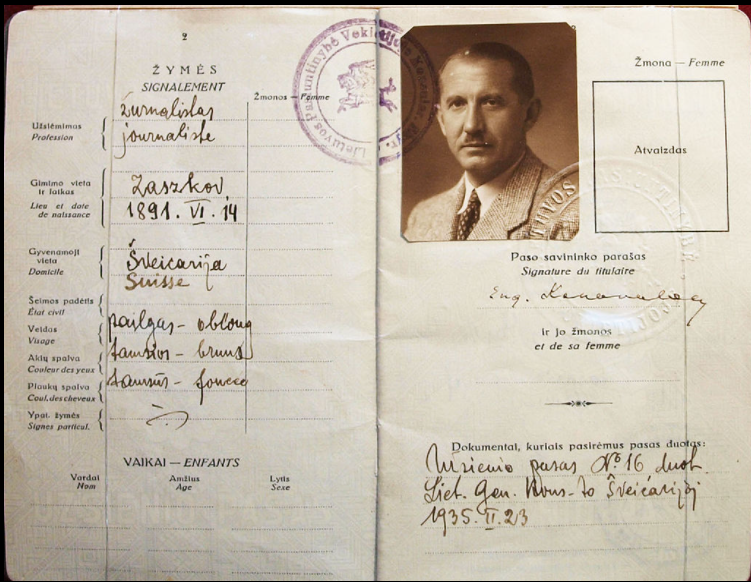 2
ŽYMĖS
SIGNALEMENT
Žmonos — Femme
Užsiėmimas
Profession
žurnalistas
journaliste
Gimimo vieta
ir laikas
Lieu et date
de naissance
Zaszkov,
1891. VI. 14
Gyvenamoji
vieta
Domicile
Šveicarija
Suisse
Šeimos padėtis
État civil
Veidas
Visage
pailgas - oblong
Akių spalva
Couleur des yeux
tamsios - bruns
Plaukų spalva
Coul. des cheveux
tamsūs - foncés
Ypat. žymės
Signes particul.
VAIKAI — ENFANTS
Vardai
Nom
Amžius
Age
Lytis
Sexe
Žmona — Femme
Atvaizdas
Paso savininko parašas
Signature du titulaire
Eug. Konovalec
ir jo žmonos
et de sa femme
Dokumentai, kuriais pasirėmus pasas duotas:
Užsienio pasas № 16 duot.
Liet. Gen. Kons-to Šveicarijoj
1935. II. 23